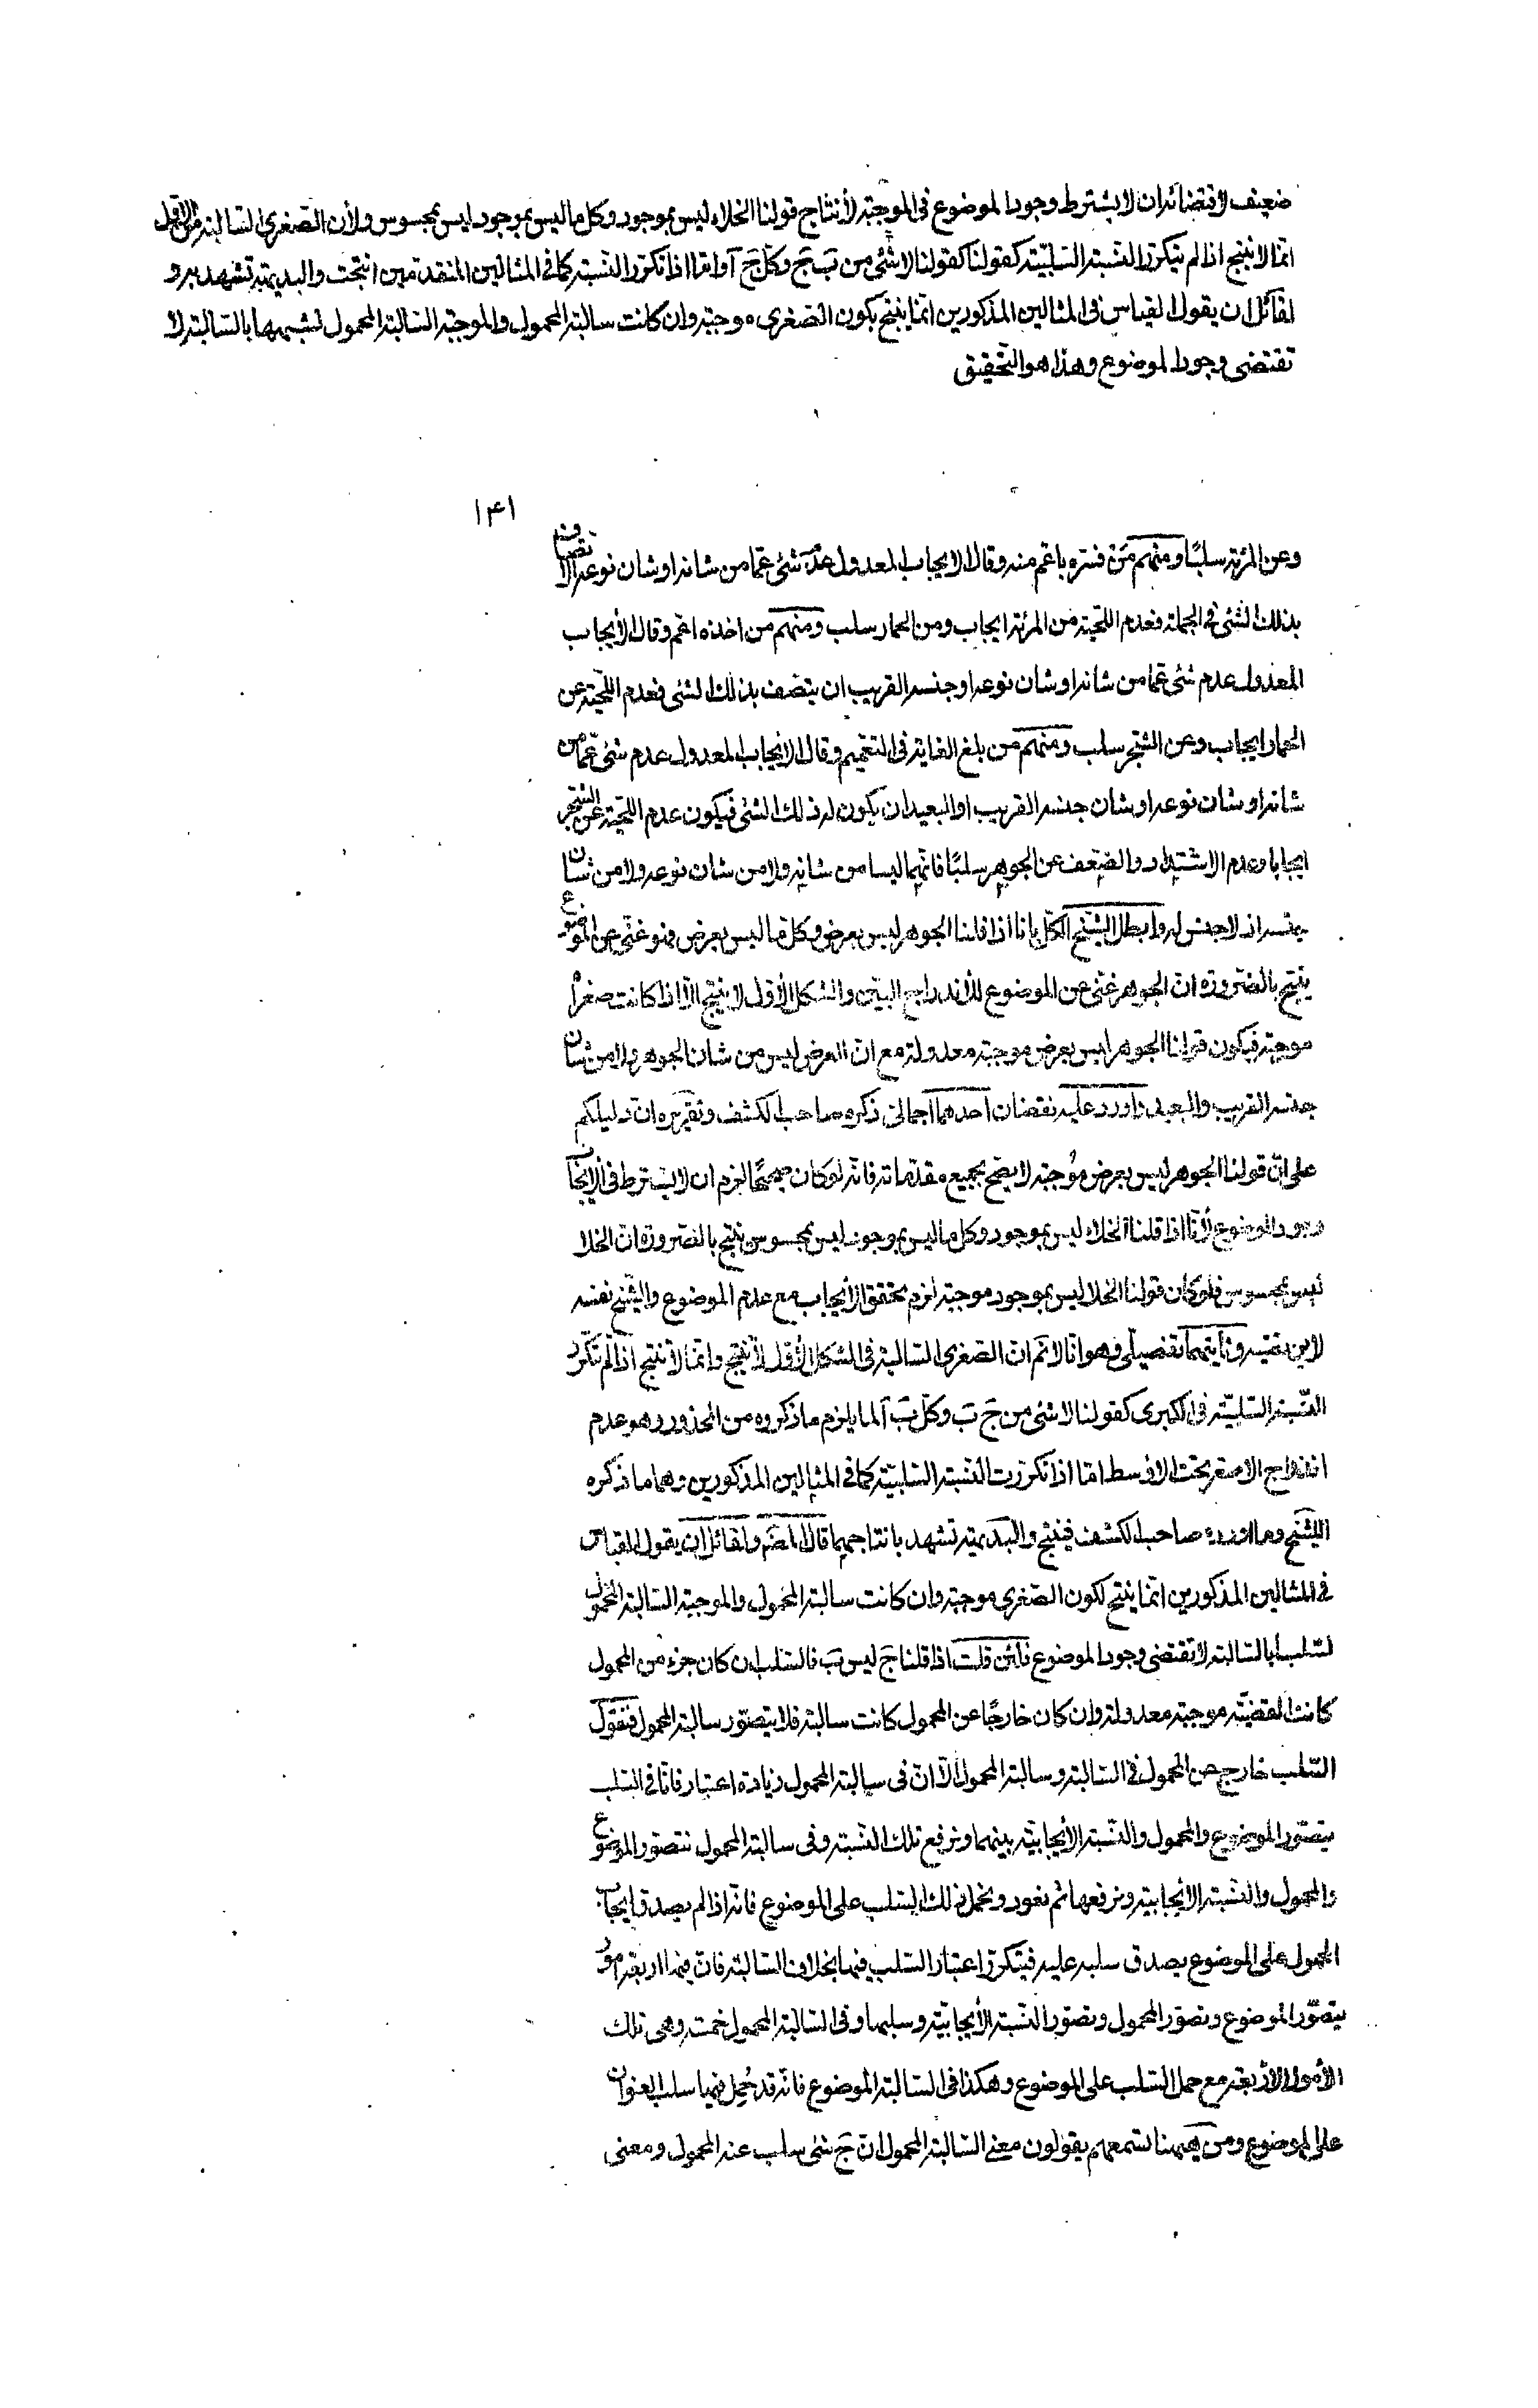 ضعيف لاقتضائه ان لا يشترط وجود الموضوع فى الموجبة لأنتاج قولنا الخلاء ليس بموجود وكل ما ليس بموجود ليس بمحسوس ولأن الصغرى السالبة فى الاول
انما لا ينتج اذا لم يتكرر النسبة السلبية كقولنا كقولنا لا شئ من ب ج وكل ج آ واما اذا تكرر النسبة كما فى المثالين المتقدمين انتجت والبديهة تشهد به و
لقائل ان يقول القياس فى المثالين المذكورين انما ينتج بكون الصغرى موجبة وان كانت سالبة المحمول والموجبة السالبة المحمول لشبهها بالسالبة لا
تقتضى وجود الموضوع وهذا هو التحقيق
١٤١
وعن المرئة سلبًا ومنهم من فسره باعم منه وقال الايجاب المعدول عدم شئ عما من شانه او شان نوعه الاتصاف
بذلك الشئ فى الجملة فعدم اللحية من المرئة ايجاب ومن الحمار سلب ومنهم من اخذه اعم وقال الأيجاب
المعدول عدم شئ عما من شانه او شان نوعه او جنسه القريب ان يتصف بذلك الشئ فعدم اللحية عن
الحمار ايجاب وعن الشجر سلب ومنهم من بلغ الغاية فى التعميم وقال الايجاب المعدول عدم شئ عما من
شانه او شان نوعه او شان جنسه القريب او البعيد ان يكون له ذلك الشئ فيكون عدم اللحية عن الشجر
ايجابا وعدم الاشتداد والضعف عن الجوهر سلبًا فانهما ليسا من شانه ولا من شان نوعه ولا من شان
جنسه اذ لا جنس له وابطل الشيخ الكل بانا اذا قلنا الجوهر ليس بعرض وكل ما ليس بعرض فهو غنى عن الموضوع
ينتج بالضرورة ان الجوهر غنى عن الموضوع للأندراج البين والشكل الأول لا ينتج الا اذا كانت صغراه
موجبة فيكون قولنا الجوهر ليس بعرض موجبة معدولة مع ان العرض ليس من شان الجوهر ولا من شان
جنسه القريب والبعيد واورد عليه نقضان احدهما اجمالى ذكره صاحب الكشف وتقريره ان دليلكم
على ان قولنا الجوهر ليس بعرض موجبة لا يصح بجميع مقدماته فانه لو كان صحيحًا لزم ان لا يشترط فى الايجاب
وجود الموضوع لأنا اذا قلنا الخلاء ليس بموجود وكل ما ليس بموجود ليس بمحسوس ينتج بالضرورة ان الخلا
ليس بمحسوس فلو كان قولنا الخلا ليس بموجود موجبة لزم تحقق الأيجاب مع عدم الموضوع والشيخ نفسه
لا يرتضيه وثانيهما تفصيلى وهو انا لانم ان الصغرى السالبة فى الشكل الأول لا تنتج وانما لا تنتج اذا لم تكرر
النسبة السلبية فى الكبرى كقولنا لا شئ من ج ب وكل ب آ لما يلزم ما ذكروه من المحذور وهو عدم
اندراج الاصغر تحت الاوسط اما اذا تكررت النسبة السلبية كما فى المثالين المذكورين وهما ما ذكره
الشيخ وما اورده صاحب الكشف فينتج والبديهة تشهد بانتاجهما قال المص ولقائل ان يقول القياس
فى المثالين المذكورين انما ينتج لكون الصغرى موجبة وان كانت سالبة المحمول والموجبة السالبة المحمول
لشبهها بالسالبة لا تقتضى وجود الموضوع فلئن قلت اذا قلنا ج ليس ب فالسلب ان كان جزء من المحمول
كانت القضية موجبة معدولة وان كان خارجًا عن المحمول كانت سالبة فلا يتصور سالبة المحمول فنقول
السلب خارج عن المحمول فى السالبة وسالبة المحمول الا ان فى سالبة المحمول زيادة اعتبار فانا فى السلب
يتصور الموضوع والمحمول والنسبة الأيجابية بينهما ونرفع تلك النسبة وفى سالبة المحمول نتصور الموضوع
والمحمول والنسبة الايجابية ونرفعها ثم نعود ونحمل ذلك السلب على الموضوع فانه اذا لم يصدق ايجاب
المحمول على الموضوع يصدق سلبه عليه فيتكرر اعتبار السلب فيها بخلاف السالبة فان فيها اربعة امور
يتصور الموضوع وتصور المحمول وتصور النسبة الأيجابية وسلبها وفى السالبة المحمول خمسة وهى تلك
الأمور الأربعة مع حمل السلب على الموضوع وهكذا فى السالبة الموضوع فانه قد حُمِل فيها سلب العنوان
على الموضوع ومن هيهنا تسمعهم يقولون معنى السالبة المحمول ان ج شئ سلب عنه المحمول ومعنى